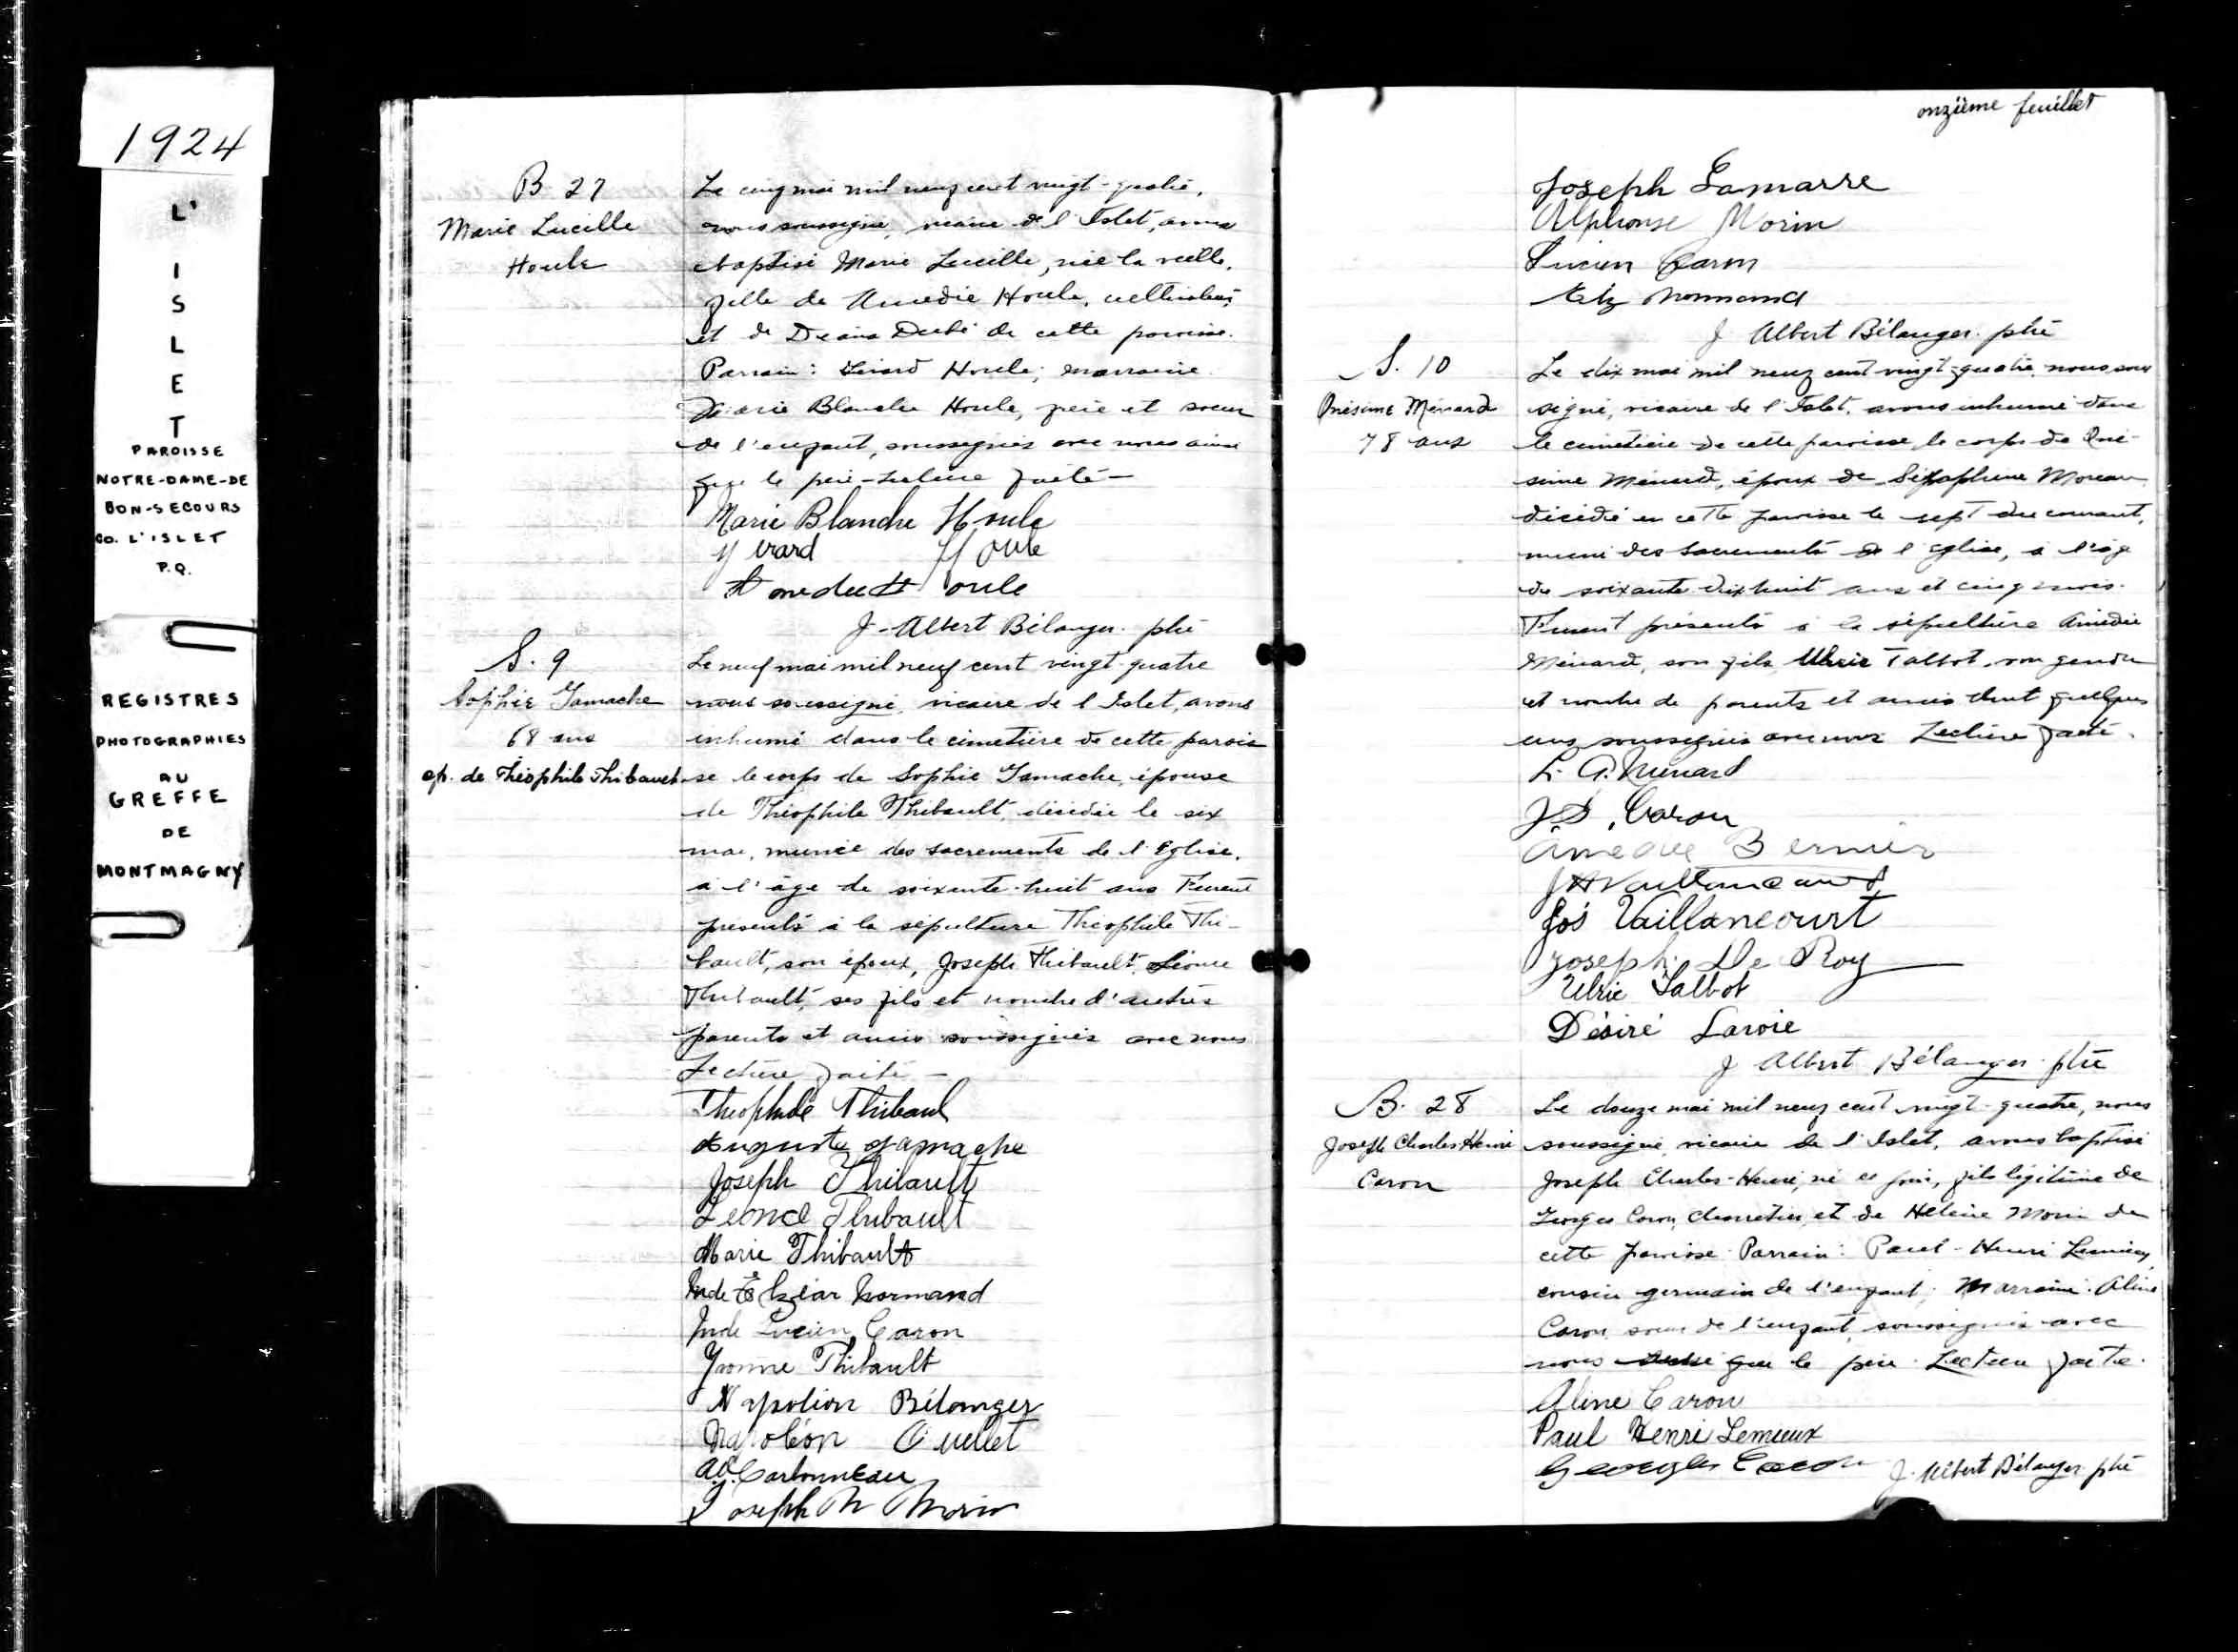 1924
L'
I
S
L
E
T
PAROISSE
NOTRE-DAME-DE
BON-SECOURS
CO. L'ISLET
P.Q.
REGISTRES
PHOTOGRAPHIES
AU
GREFFE
DE
MONTMAGNY
B. 27
Marie Lucille
Houle
Le cinq mai mil neuf cent vingt-quatre,
nous soussigné, vicaire de l'Islet, avons
baptisé Marie Lucille, née la veille,
fille de Amédée Houle, cultivateur
et de Déana Dubé de cette paroisse.
Parrain: Houle; marraine
Marie Blanche Houle, frère et soeur
de l'enfant, soussignés avec nous ainsi
que le père. Lecture faite —
Marie Blanche Houle
Houle
Amedee Houle
J. Albert Bélanger ptre
S. 9
Sophie Gamache
68 ans
ep. de Théophile Thibault
Le neuf mai mil neuf cent vingt-quatre
nous soussigné, vicaire de l'Islet, avons
inhumé dans le cimetière de cette parois
se le corps de Sophie Gamache, épouse
de Théophile Thibault, décédée le six
mai, munie des sacrements de l'Eglise,
à l'âge de soixante-huit ans. Furent
présents à la sépulture Théophile Thi-
bault, son époux, Joseph Thibault, Léonce
Thibault, ses fils et nombre d'autres
parents et amis soussignés avec nous
Lecture faite —
Theophile Thibault
Auguste Gamache
Joseph Thibault
Leonce Thibault
Marie Thibault
Mde Elzéar Normand
Mde Lucien Caron
Yvonne Thibault
Napoléon Bélanger
Napoléon Ouellet
Carbonneau
Joseph N Morin
onzième feuillet
Joseph Lamarre
Alphonse Morin
Lucien Caron
Elz Normand
J Albert Bélanger ptre
S. 10
Onésime Ménard
78 ans
Le dix mai mil neuf cent vingt-quatre nous sous
signé, vicaire de l'Islet, avons inhumé dans
le cimetière de cette paroisse le corps de Oné-
sime Ménard, époux de Séraphine Moreau,
décédé en cette paroisse le sept du courant,
muni des sacrements de l'Eglise, à l'âge
de soixante-dix-huit ans et cinq mois.
Furent présents à la sépulture Amédée
Ménard, son fils, Ulric Talbot, son gendre
et nombre de parents et amis dont quelques
uns soussignés avec nous Lecture faite.
L. A. Ménard
J. S. Caron
Amedee Bernier
J A Vaillancourt
Jos Vaillancourt
Joseph De Roy
Ulric Talbot
Désiré Lavoie
J Albert Bélanger ptre
B. 28
Joseph Charles Henri
Caron
Le douze mai mil neuf cent vingt-quatre, nous
soussigné, vicaire de l'Islet, avons baptisé
Joseph Charles-Henri, né ce jour, fils légitime de
Georges Caron, charretier, et de Hélène Morin de
cette paroisse. Parrain: Paul-Henri Lemieux,
cousin germain de l'enfant; Marraine: Aline
Caron, soeur de l'enfant, soussignés avec
nous que le père. Lecture faite.
Aline Caron
Paul Henri Lemieux
Georges Caron
J. Albert Bélanger ptre